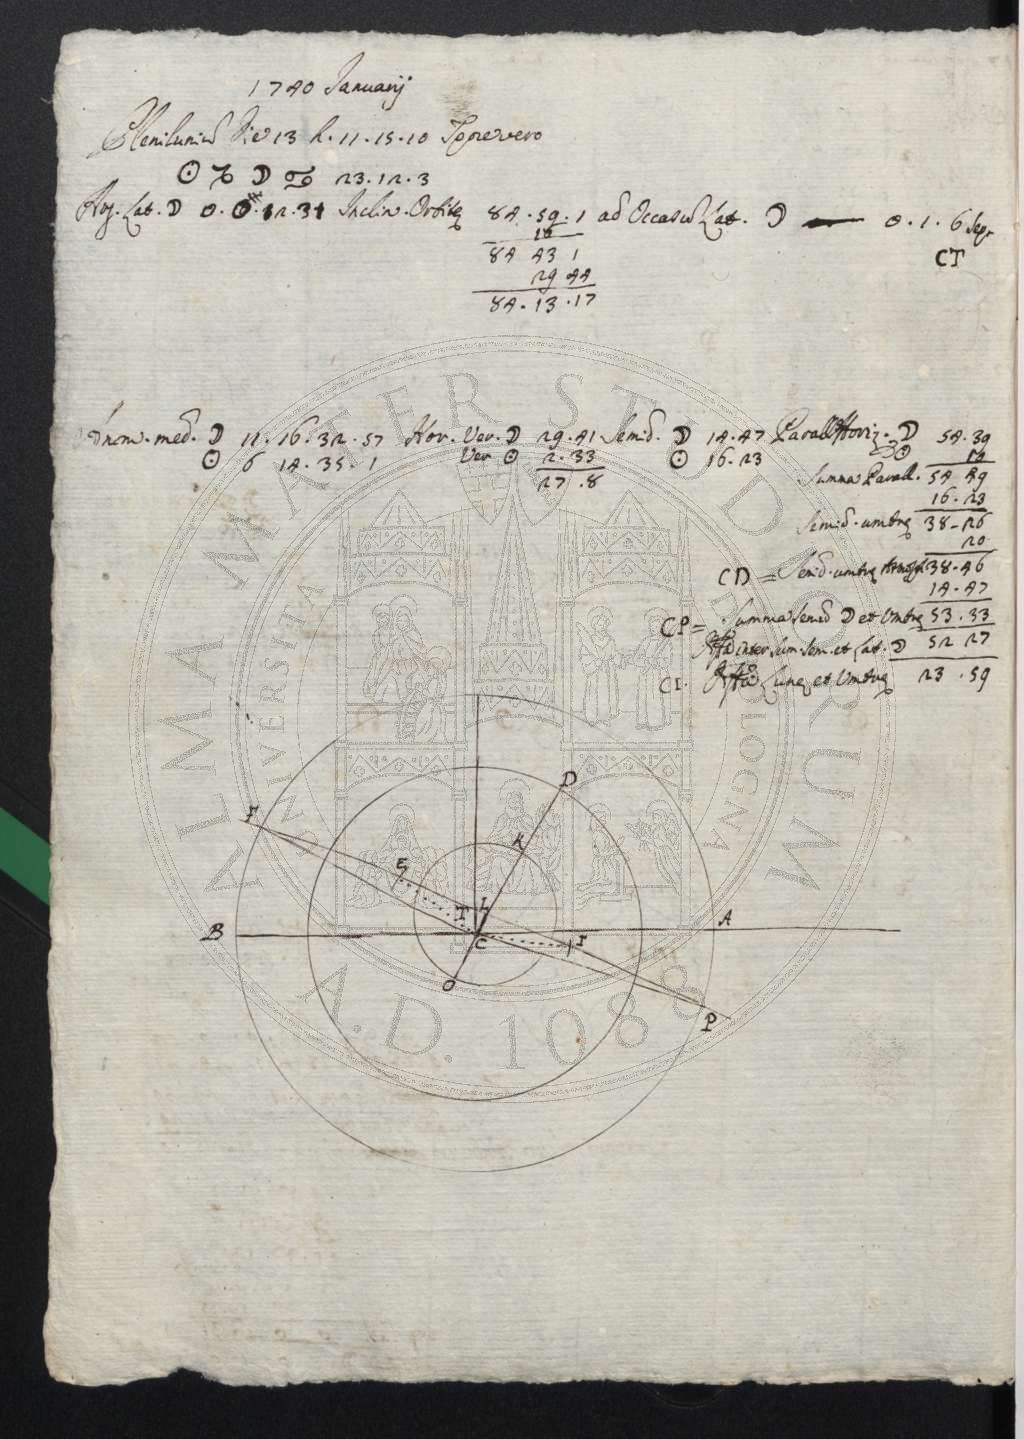 1740 Januarij
Plenilunium Die 13 h. 11. 15. 10 Tpre vero
☉ ♑ ☽ ♋ 23. 12. 3
Arg. Lat. ☽ 0. 0. 12. 31 Inclin. Orbitę 84. 59. 1 ad Occasum Lat. ☽ 0. 1. 6 Sepr
16
84 43 1
CT
29 44
84. 13. 17
Anom. med. ☽ 11. 16. 32. 57 Hor. Ver. ☽ 29. 41 Semid. ☽ 14. 47 Parall. Horiz. ☽ 54. 39
☉ 6 14. 35. 1 Ver ☉ 2. 33 ☉ 16. 23 ☉ 10
27. 8 Summa Parall. 54 49
16. 23
Semid. umbrę 38-26
20
CD = Semid. umbrę 38. 46
14. 47
CP = Summa semid ☽ et Umbrę 53. 33
inter Sum. Sem. et Lat. ☽ 52 27
CI. Lunę et Umbrę 23. 59
D
F
K
E
L
T
B
A
C
I
O
P
ALMA MATER STUDIORUM
UNIVERSITÀ DI BOLOGNA
A.D. 1088